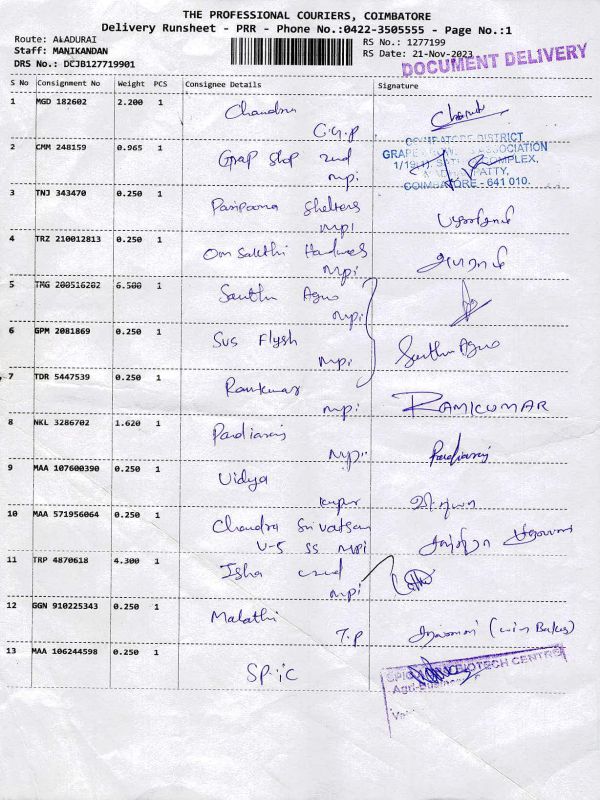 THE PROFESSIONAL COURIERS, COIMBATORE
Delivery Runsheet - PRR - Phone No.:0422-3505555 - Page No.:1
Route: ALADURAI
Staff: MANIKANDAN
DRS No.: DCJB127719901
RS No.: 1277199
RS Date: 21-Nov-2023
DOCUMENT DELIVERY
S No Consignment No Weight PCS Consignee Details Signature
1 MGD 182602 2.200 1 Chandra
2 CMM 248159 0.965 1 Grap shop 2nd
mpi
COIMBATORE DISTRICT
ASSOCIATION
COMPLEX,
COIMBATORE - 641 010.
3 TNJ 343470 0.250 1 Shelters
mpi
4 TRZ 210012813 0.250 1 Om Sakthi
mpi
5 TMG 200516202 6.500 1 Santhi Agro
mpi
6 GPM 2081869 0.250 1 Sus Flysh
mpi Santhi Agro
7 TDR 5447539 0.250 1 Ramkumar
mpi RAMKUMAR
8 NKL 3286702 1.620 1 Pandiaraj
mpi Pandiaraj
9 MAA 107600390 0.250 1 Vidya
10 MAA 571956064 0.250 1 Chandra Srivatsan
V-5 SS mpi
11 TRP 4870618 4.300 1 Isha
mpi
12 GGN 910225343 0.250 1 Malathi
T.P
13 MAA 106244598 0.250 1 SPIC
SPIC BIOTECH CENTRE